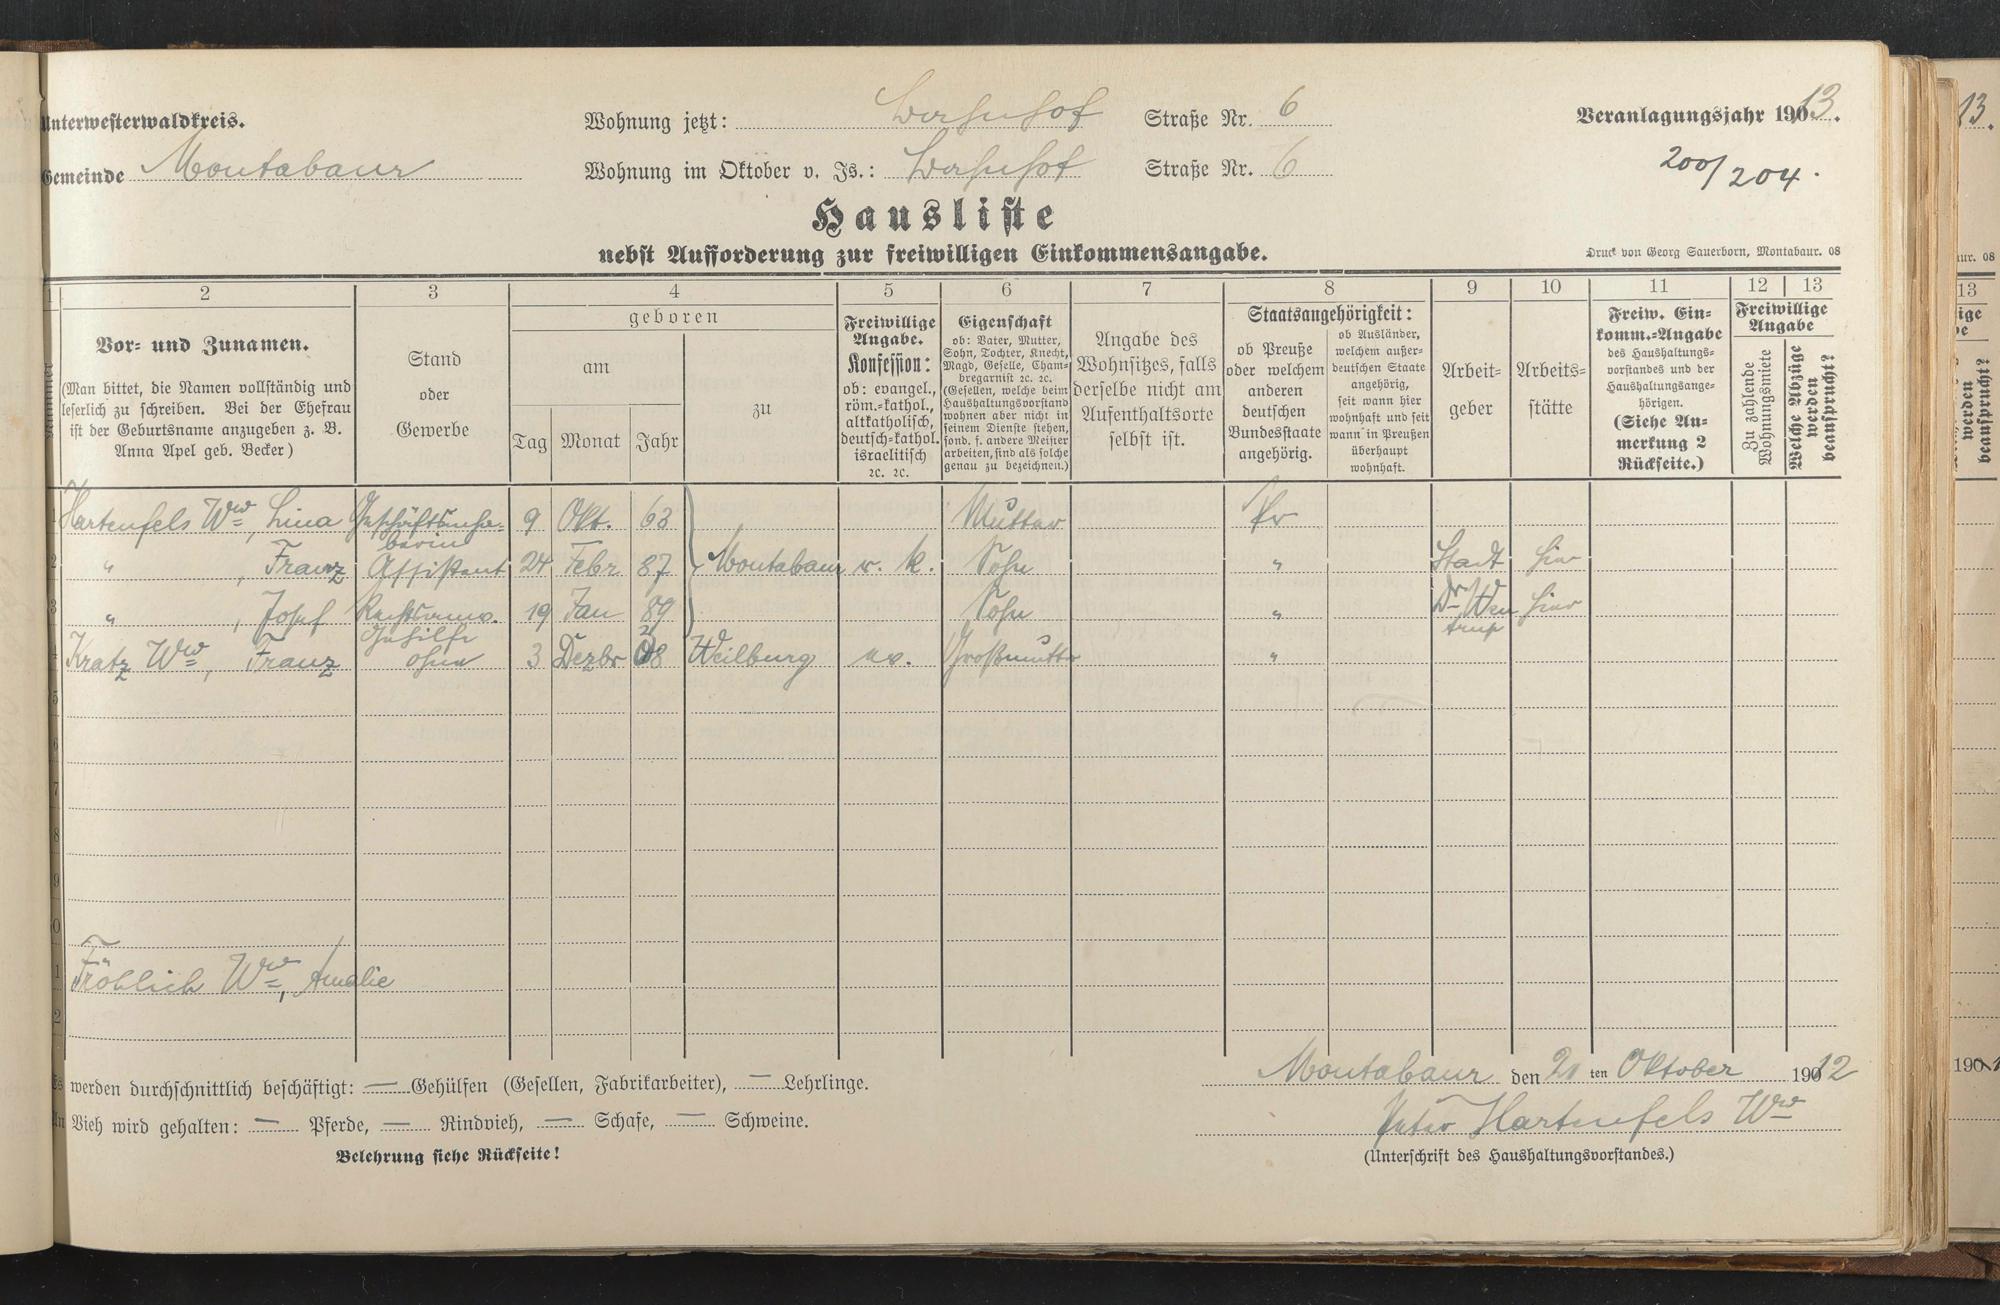 Unterwesterwaldkreis.
Wohnung jetzt: Bahnhof Straße Nr. 6
Veranlagungsjahr 1913.
Gemeinde Montabaur
Wohnung im Oktober v. Js.: Bahnhof Straße Nr. 6
200/204.
Hausliste
nebst Aufforderung zur freiwilligen Einkommensangabe.
Druck von Georg Sauerborn, Montabaur. 08
1 2 3 4 5 6 7 8 9 10 11 12 13
Nummer
Vor- und Zunamen.
(Man bittet, die Namen vollständig und
leserlich zu schreiben. Bei der Ehefrau
ist der Geburtsname anzugeben z. B.
Anna Apel geb. Becker)
Stand
oder
Gewerbe
geboren
am
Tag Monat Jahr
zu
Freiwillige
Angabe.
Konfession:
ob: evangel.,
röm.-kathol.,
altkatholisch,
deutsch-kathol.
israelitisch
ꝛc. ꝛc.
Eigenschaft
ob: Vater, Mutter,
Sohn, Tochter, Knecht,
Magd, Geselle, Cham-
bregarnist ꝛc. ꝛc.
(Gesellen, welche beim
Haushaltungsvorstand
wohnen aber nicht in
seinem Dienste stehen,
sond. f. andere Meister
arbeiten, sind als solche
genau zu bezeichnen.)
Angabe des
Wohnsitzes, falls
derselbe nicht am
Aufenthaltsorte
selbst ist.
Staatsangehörigkeit:
ob Preuße
oder welchem
anderen
deutschen
Bundesstaate
angehörig.
ob Ausländer,
welchem außer-
deutschen Staate
angehörig,
seit wann hier
wohnhaft und seit
wann in Preußen
überhaupt
wohnhaft.
Arbeit-
geber
Arbeits-
stätte
Freiw. Ein-
komm.-Angabe
des Haushaltungs-
vorstandes und der
Haushaltungsange-
hörigen.
(Siehe An-
merkung 2
Rückseite.)
Freiwillige
Angabe
Zu zahlende
Wohnungsmiete
Welche Abzüge
werden
beansprucht?
1 Hartenfels Ww, Lina Geschäftsinha-berin 9 Okt. 63 Mutter Pr
2 " , Franz Assistent 24 Febr 87 Montabaur r. k. Sohn " Stadt hier
3 " , Josef Gehilfe 19 Jan 89 Sohn " Dr hier
4 Kratz Ww, Franz ohne 3 Dezbr Weilburg ev. Großmutter "
5
6
7
8
9
10
11 Fröhlich Ww, Amalie
12
Es werden durchschnittlich beschäftigt: — Gehülfen (Gesellen, Fabrikarbeiter), — Lehrlinge.
An Vieh wird gehalten: — Pferde, — Rindvieh, — Schafe, — Schweine.
Belehrung siehe Rückseite!
Montabaur den 21 ten Oktober 1912
Peter Hartenfels Ww
(Unterschrift des Haushaltungsvorstandes.)